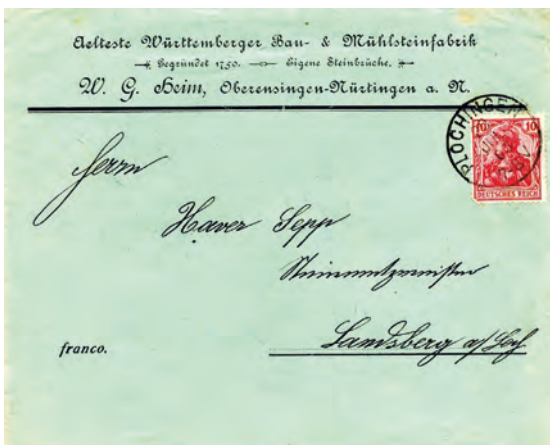 Aelteste Württemberger Bau- & Mühlsteinfabrik
Gegründet 1750. Eigene Steinbrüche.
W. G. Heim, Oberensingen-Nürtingen a. N.
PLOCHINGEN
10 10
DEUTSCHES REICH
Herrn
Xaver Sepp
Steinmetzmeister
Landsberg a/Lech
franco.